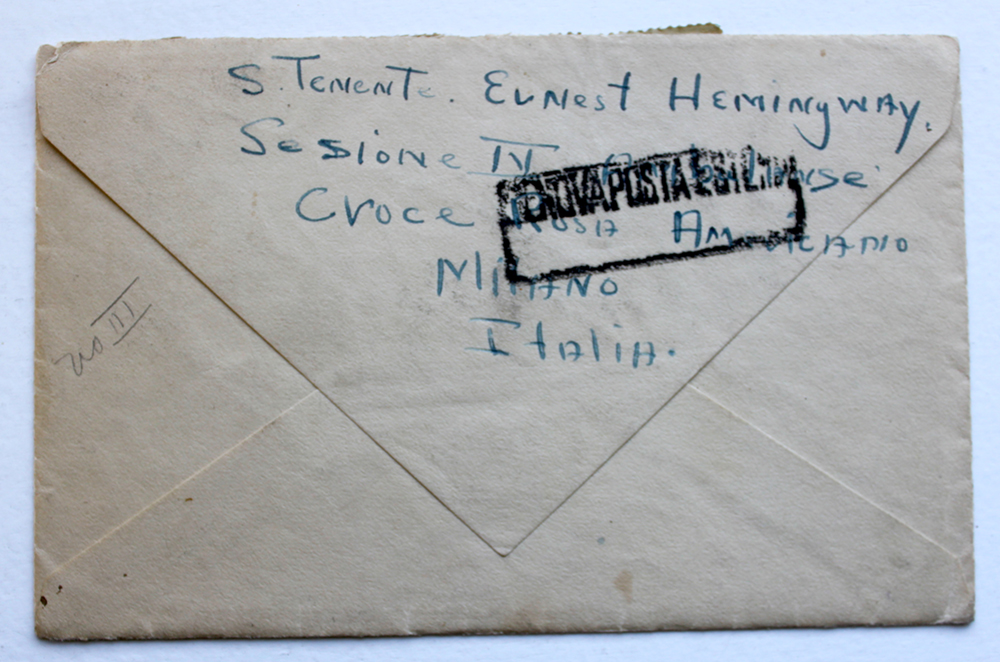 S. Tenente. Ernest Hemingway.
Sesione IV
Croce Rosa Americano
Milano
Italia.
GENOVA POSTA ESTERA
no III